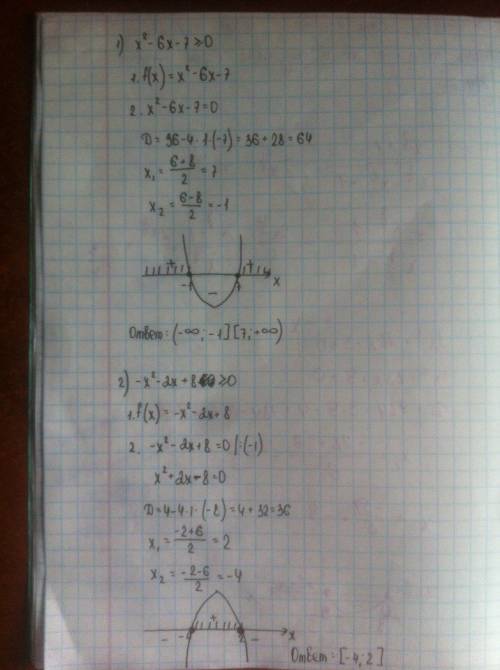 1) x² - 6x - 7 ≥ 0
1. f(x) = x² - 6x - 7
2. x² - 6x - 7 = 0
D = 36 - 4 · 1 · (-7) = 36 + 28 = 64
x₁ = (6+8)/2 = 7
x₂ = (6-8)/2 = -1
+ +
-1 7 x
-
Ответ: (-∞; -1] [7; +∞)
2) -x² - 2x + 8 ≥ 0
1. f(x) = -x² - 2x + 8
2. -x² - 2x + 8 = 0 |:(-1)
x² + 2x - 8 = 0
D = 4 - 4 · 1 · (-8) = 4 + 32 = 36
x₁ = (-2+6)/2 = 2
x₂ = (-2-6)/2 = -4
+
- -4 2 - x
Ответ: [-4; 2]